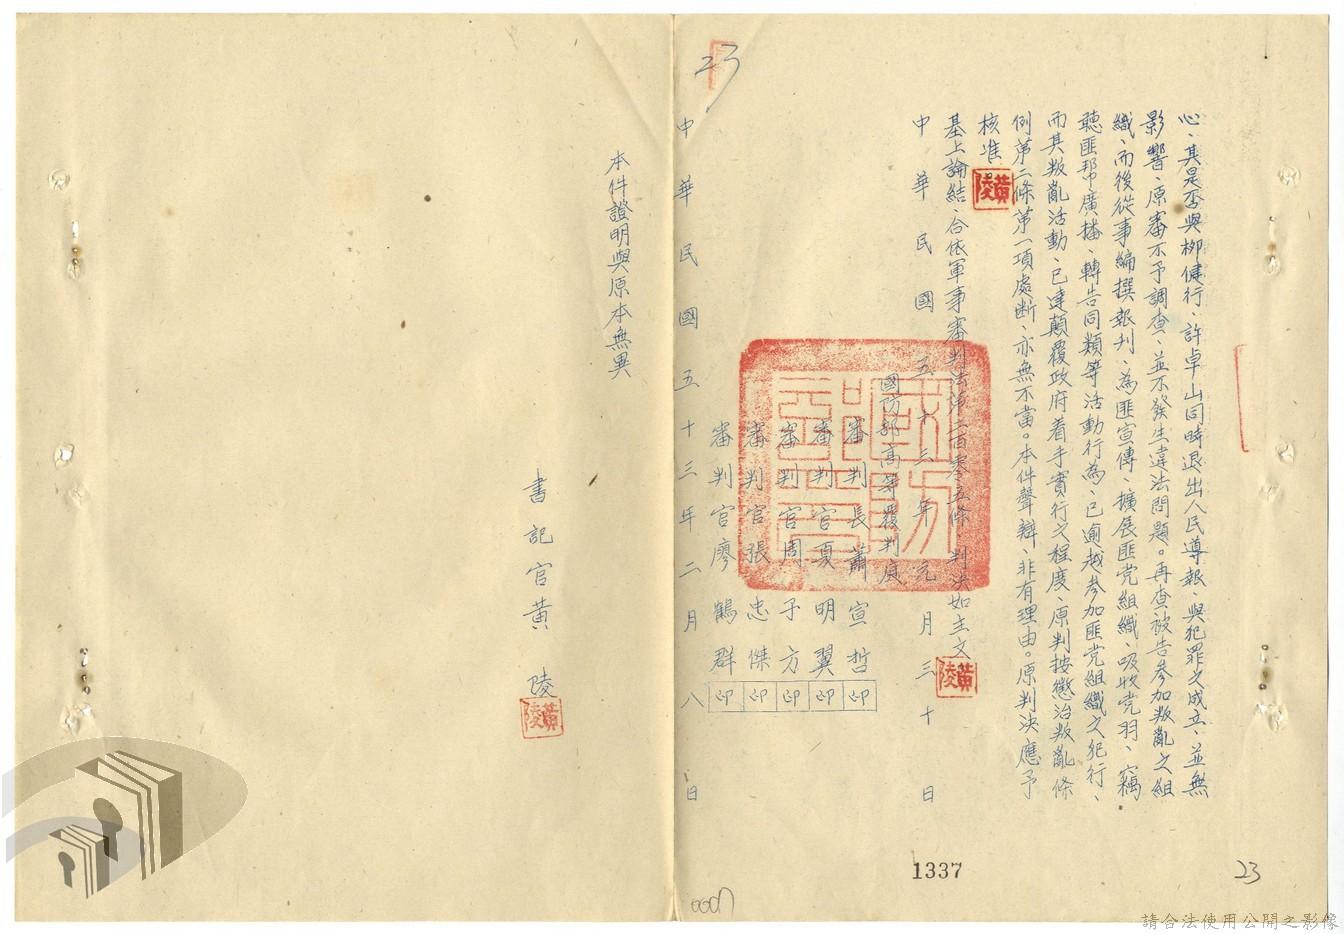 23
心、其是否與柳健行、許卓山同時退出人民導報、與犯罪之成立、並無
影響、原審不予調查、並不發生違法問題。再查被告參加叛亂之組
織、而後從事編撰報刊、為匪宣傳、擴展匪党組織、吸收党羽、竊
聽匪幫廣播、轉告同類等活動行為、已逾越參加匪党組織之犯行、
而其叛亂活動、已達顛覆政府着手實行之程度、原判按懲治叛亂條
例第二條第一項處断、亦無不當。本件聲辯、非有理由。原判決應予
核准。
黃陵
基上論結、合依軍事審判法第二百零五條 判決如主文
黃陵
中華民國五十三年元月三十日
國防部高等覆判庭
審判長蕭宣哲 印
審判官夏明翼 印
審判官周子方 印
審判官張忠傑 印
審判官廖鶴群 印
中華民國五十三年二月八日
本件證明與原本無異
書記官黃陵
黃陵
1337
23
請合法使用公開之影像